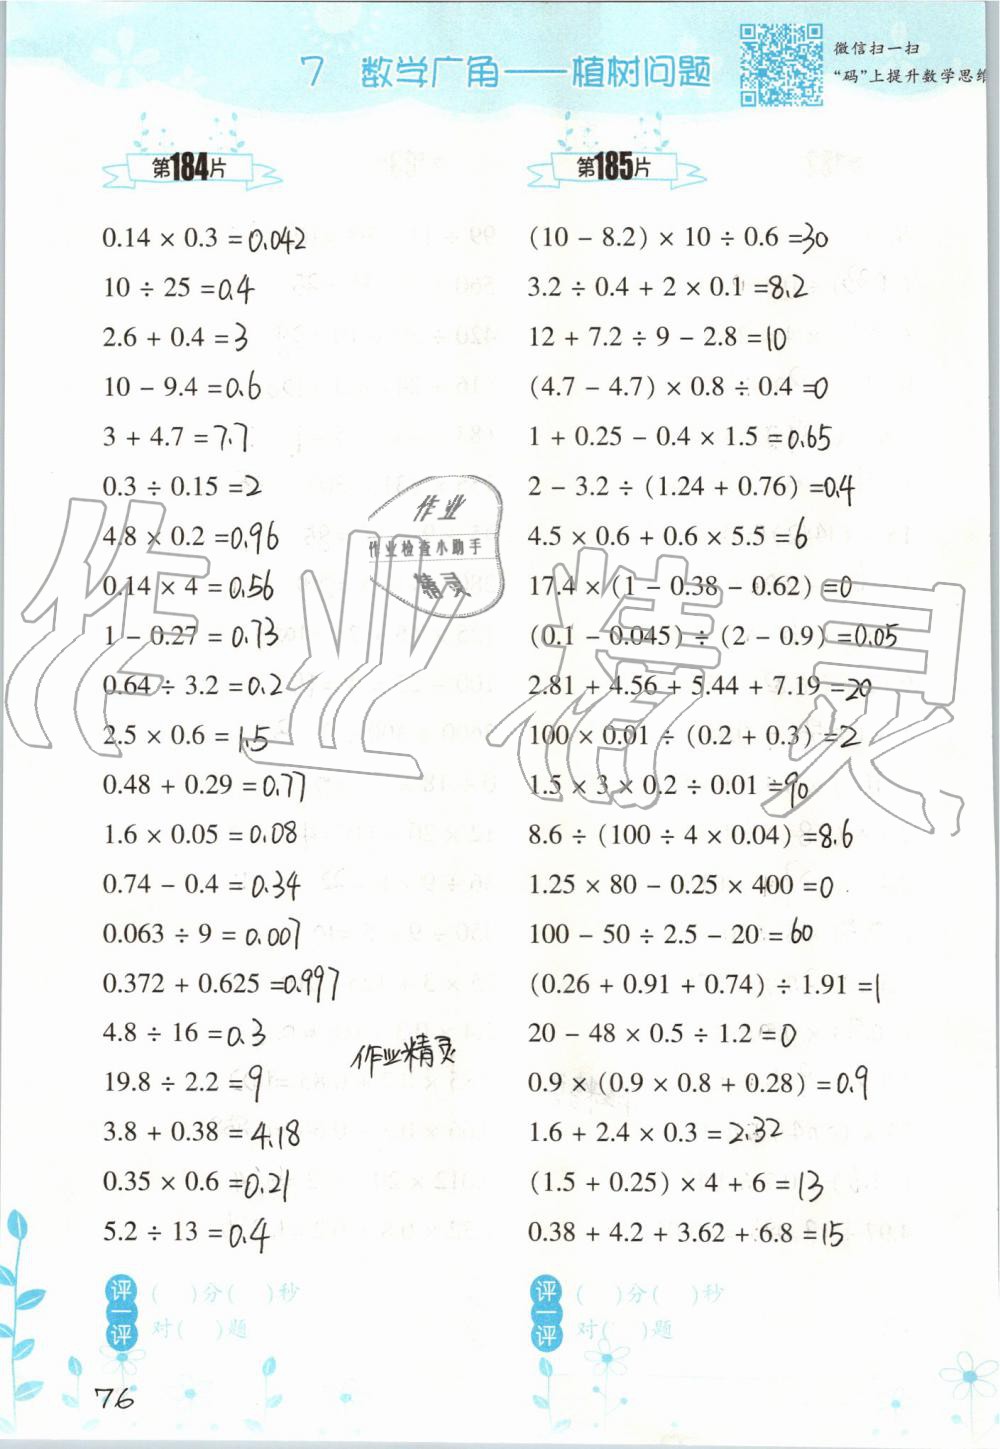 7 数学广角——植树问题
微信扫一扫
“码”上提升数学思维
第184片
0.14 × 0.3 = 0.042
10 ÷ 25 = 0.4
2.6 + 0.4 = 3
10 − 9.4 = 0.6
3 + 4.7 = 7.7
0.3 ÷ 0.15 = 2
4.8 × 0.2 = 0.96
0.14 × 4 = 0.56
1 − 0.27 = 0.73
0.64 ÷ 3.2 = 0.2
2.5 × 0.6 = 1.5
0.48 + 0.29 = 0.77
1.6 × 0.05 = 0.08
0.74 − 0.4 = 0.34
0.063 ÷ 9 = 0.007
0.372 + 0.625 = 0.997
4.8 ÷ 16 = 0.3
19.8 ÷ 2.2 = 9
3.8 + 0.38 = 4.18
0.35 × 0.6 = 0.21
5.2 ÷ 13 = 0.4
评一评
( )分( )秒
对( )题
第185片
(10 − 8.2) × 10 ÷ 0.6 = 30
3.2 ÷ 0.4 + 2 × 0.1 = 8.2
12 + 7.2 ÷ 9 − 2.8 = 10
(4.7 − 4.7) × 0.8 ÷ 0.4 = 0
1 + 0.25 − 0.4 × 1.5 = 0.65
2 − 3.2 ÷ (1.24 + 0.76) = 0.4
4.5 × 0.6 + 0.6 × 5.5 = 6
17.4 × (1 − 0.38 − 0.62) = 0
(0.1 − 0.045) ÷ (2 − 0.9) = 0.05
2.81 + 4.56 + 5.44 + 7.19 = 20
100 × 0.01 ÷ (0.2 + 0.3) = 2
1.5 × 3 × 0.2 ÷ 0.01 = 90
8.6 ÷ (100 ÷ 4 × 0.04) = 8.6
1.25 × 80 − 0.25 × 400 = 0
100 − 50 ÷ 2.5 − 20 = 60
(0.26 + 0.91 + 0.74) ÷ 1.91 = 1
20 − 48 × 0.5 ÷ 1.2 = 0
0.9 × (0.9 × 0.8 + 0.28) = 0.9
1.6 + 2.4 × 0.3 = 2.32
(1.5 + 0.25) × 4 + 6 = 13
0.38 + 4.2 + 3.62 + 6.8 = 15
评一评
( )分( )秒
对( )题
作业
作业检查小助手
精灵
作业精灵
作业精灵
76